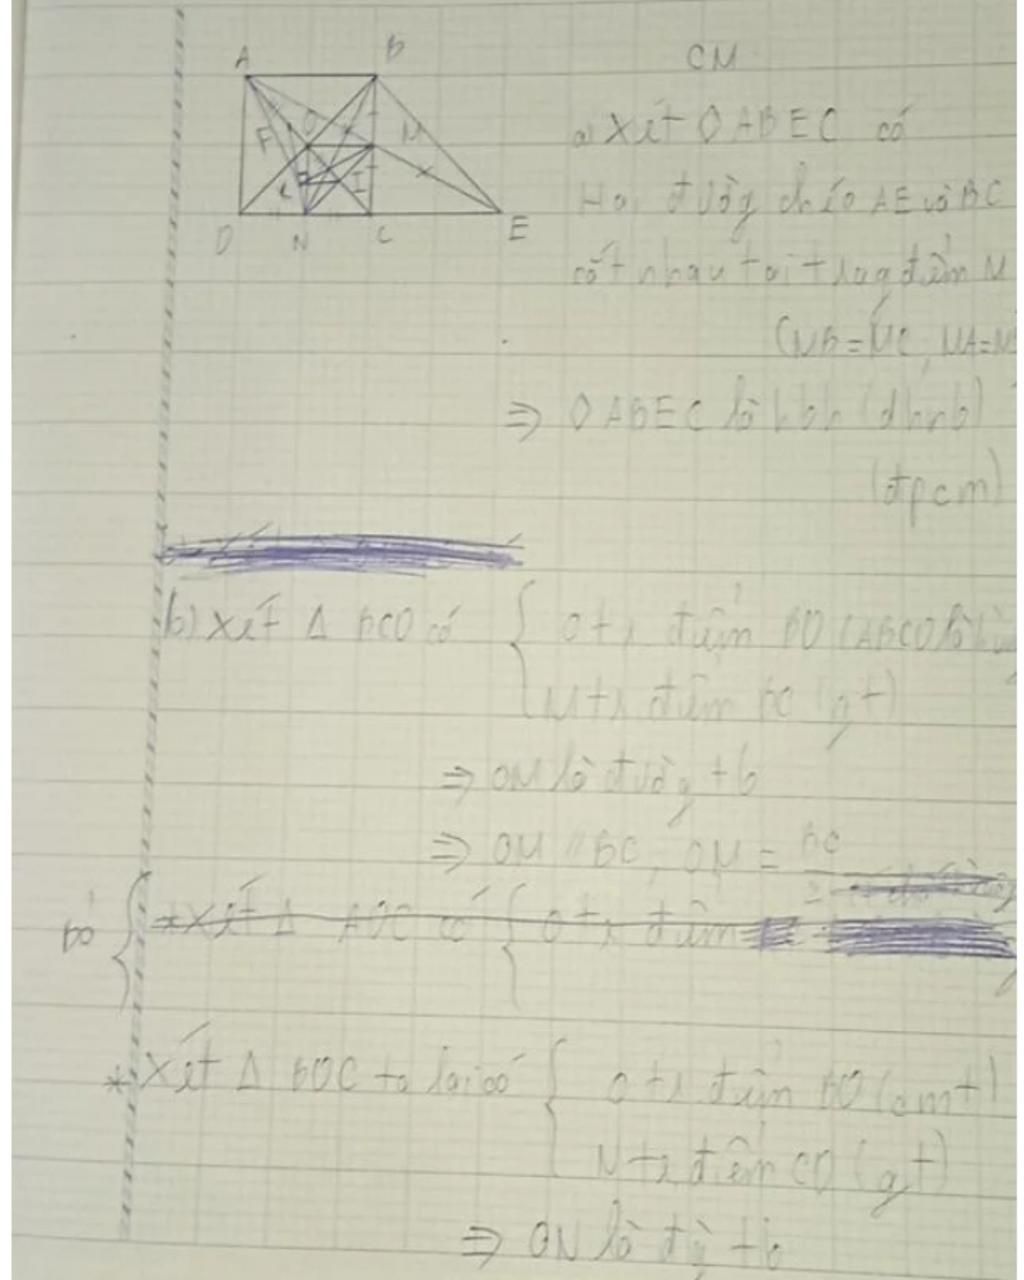 A B
F O M
K I
D N C E
CM
a) Xét ◊ ABEC có
Hai đường chéo AE và BC
cắt nhau tại trung điểm M
(MB = MC, MA = M
⇒ ◊ ABEC là hbh (dhnb)
(đpcm)
b) Xét Δ BCD có { O tr điểm BD (ABCD là
M tr điểm BC (gt)
⇒ OM là đường tb
⇒ OM // BC, OM = BC
2
bỏ { * Xét Δ ADC có { O tr điểm
* Xét Δ BDC ta lại có { O tr điểm BD (cmt)
N tr điểm CD (gt)
⇒ ON là đg tb